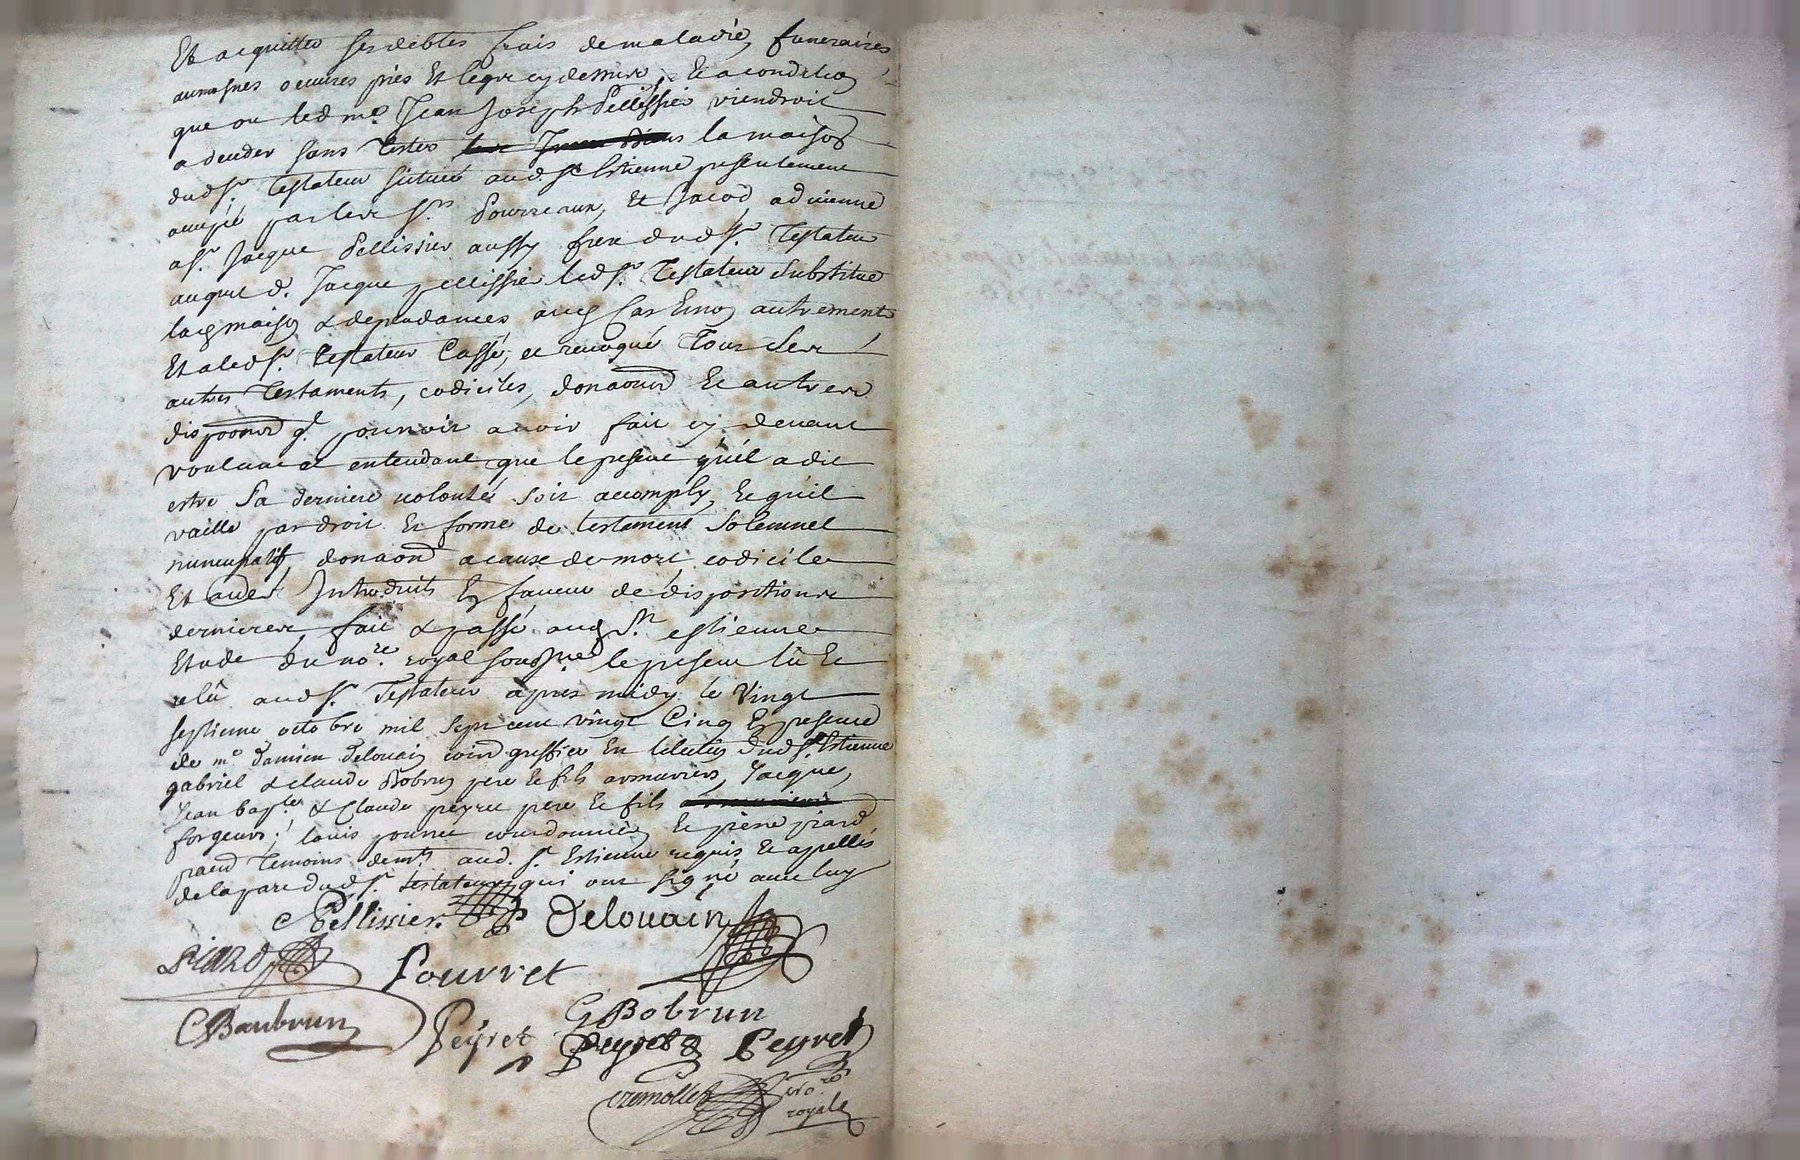 Et acquitter ses debtes frais de maladie, funeraires
aumosnes oeuvres pies Et legz cy dessus, Et a condition
que ou led me. Jean Joseph Pellissier viendroit
a deceder sans tester la maison
dud sr. Testateur sictuée aud. st Estienne presentement
occupée par les srs Pourreaux, Et Jacod, advienne
a sr. Jacque Pellissier aussy frere dud sr. Testateur
auquel d. Jacque pellissier led sr. Testateur Substitue
lad maison & dependances autrement
Et a led sr. Testateur Cassé, et revoqué Tous Ses
autres Testaments, codiciles, donaons Et autres
dispoons q'l pourroit avoir fait cy devant
voulant et entendant que le present qu'il a dit
estre Sa derniere volonté soit accomply, Et qu'il
vaille par droit Et forme de testament Solemnel
nuncupatif, donaon a cause de mort, codicile
Et Introduits En faveur de dispositions
dernieres, fait & passé aud St. estienne
Etude du nore. royal soussigné le present lû Et
relû aud sr. Testateur apres midy le Vingt
septieme octobre mil sept cent vingt Cinq En presence
de me. Damien Delouain greffier En dud st. Estienne
gabriel & claude Bobrun pere Et fils armuriers, Jacque,
Jean bapte. & Claude peyret pere Et fils
forgeurs, louis pourret courdonnier Et piere piard
Temoins demts. aud. st. Estienne requis Et appellés
de la part dud sr. testateur, qui ont signé avec luy
Pellissier Delouain
Piard Pourret
C Baubrun G Bobrun
Peyret Peyret Peyret
cremollet no.re
royal